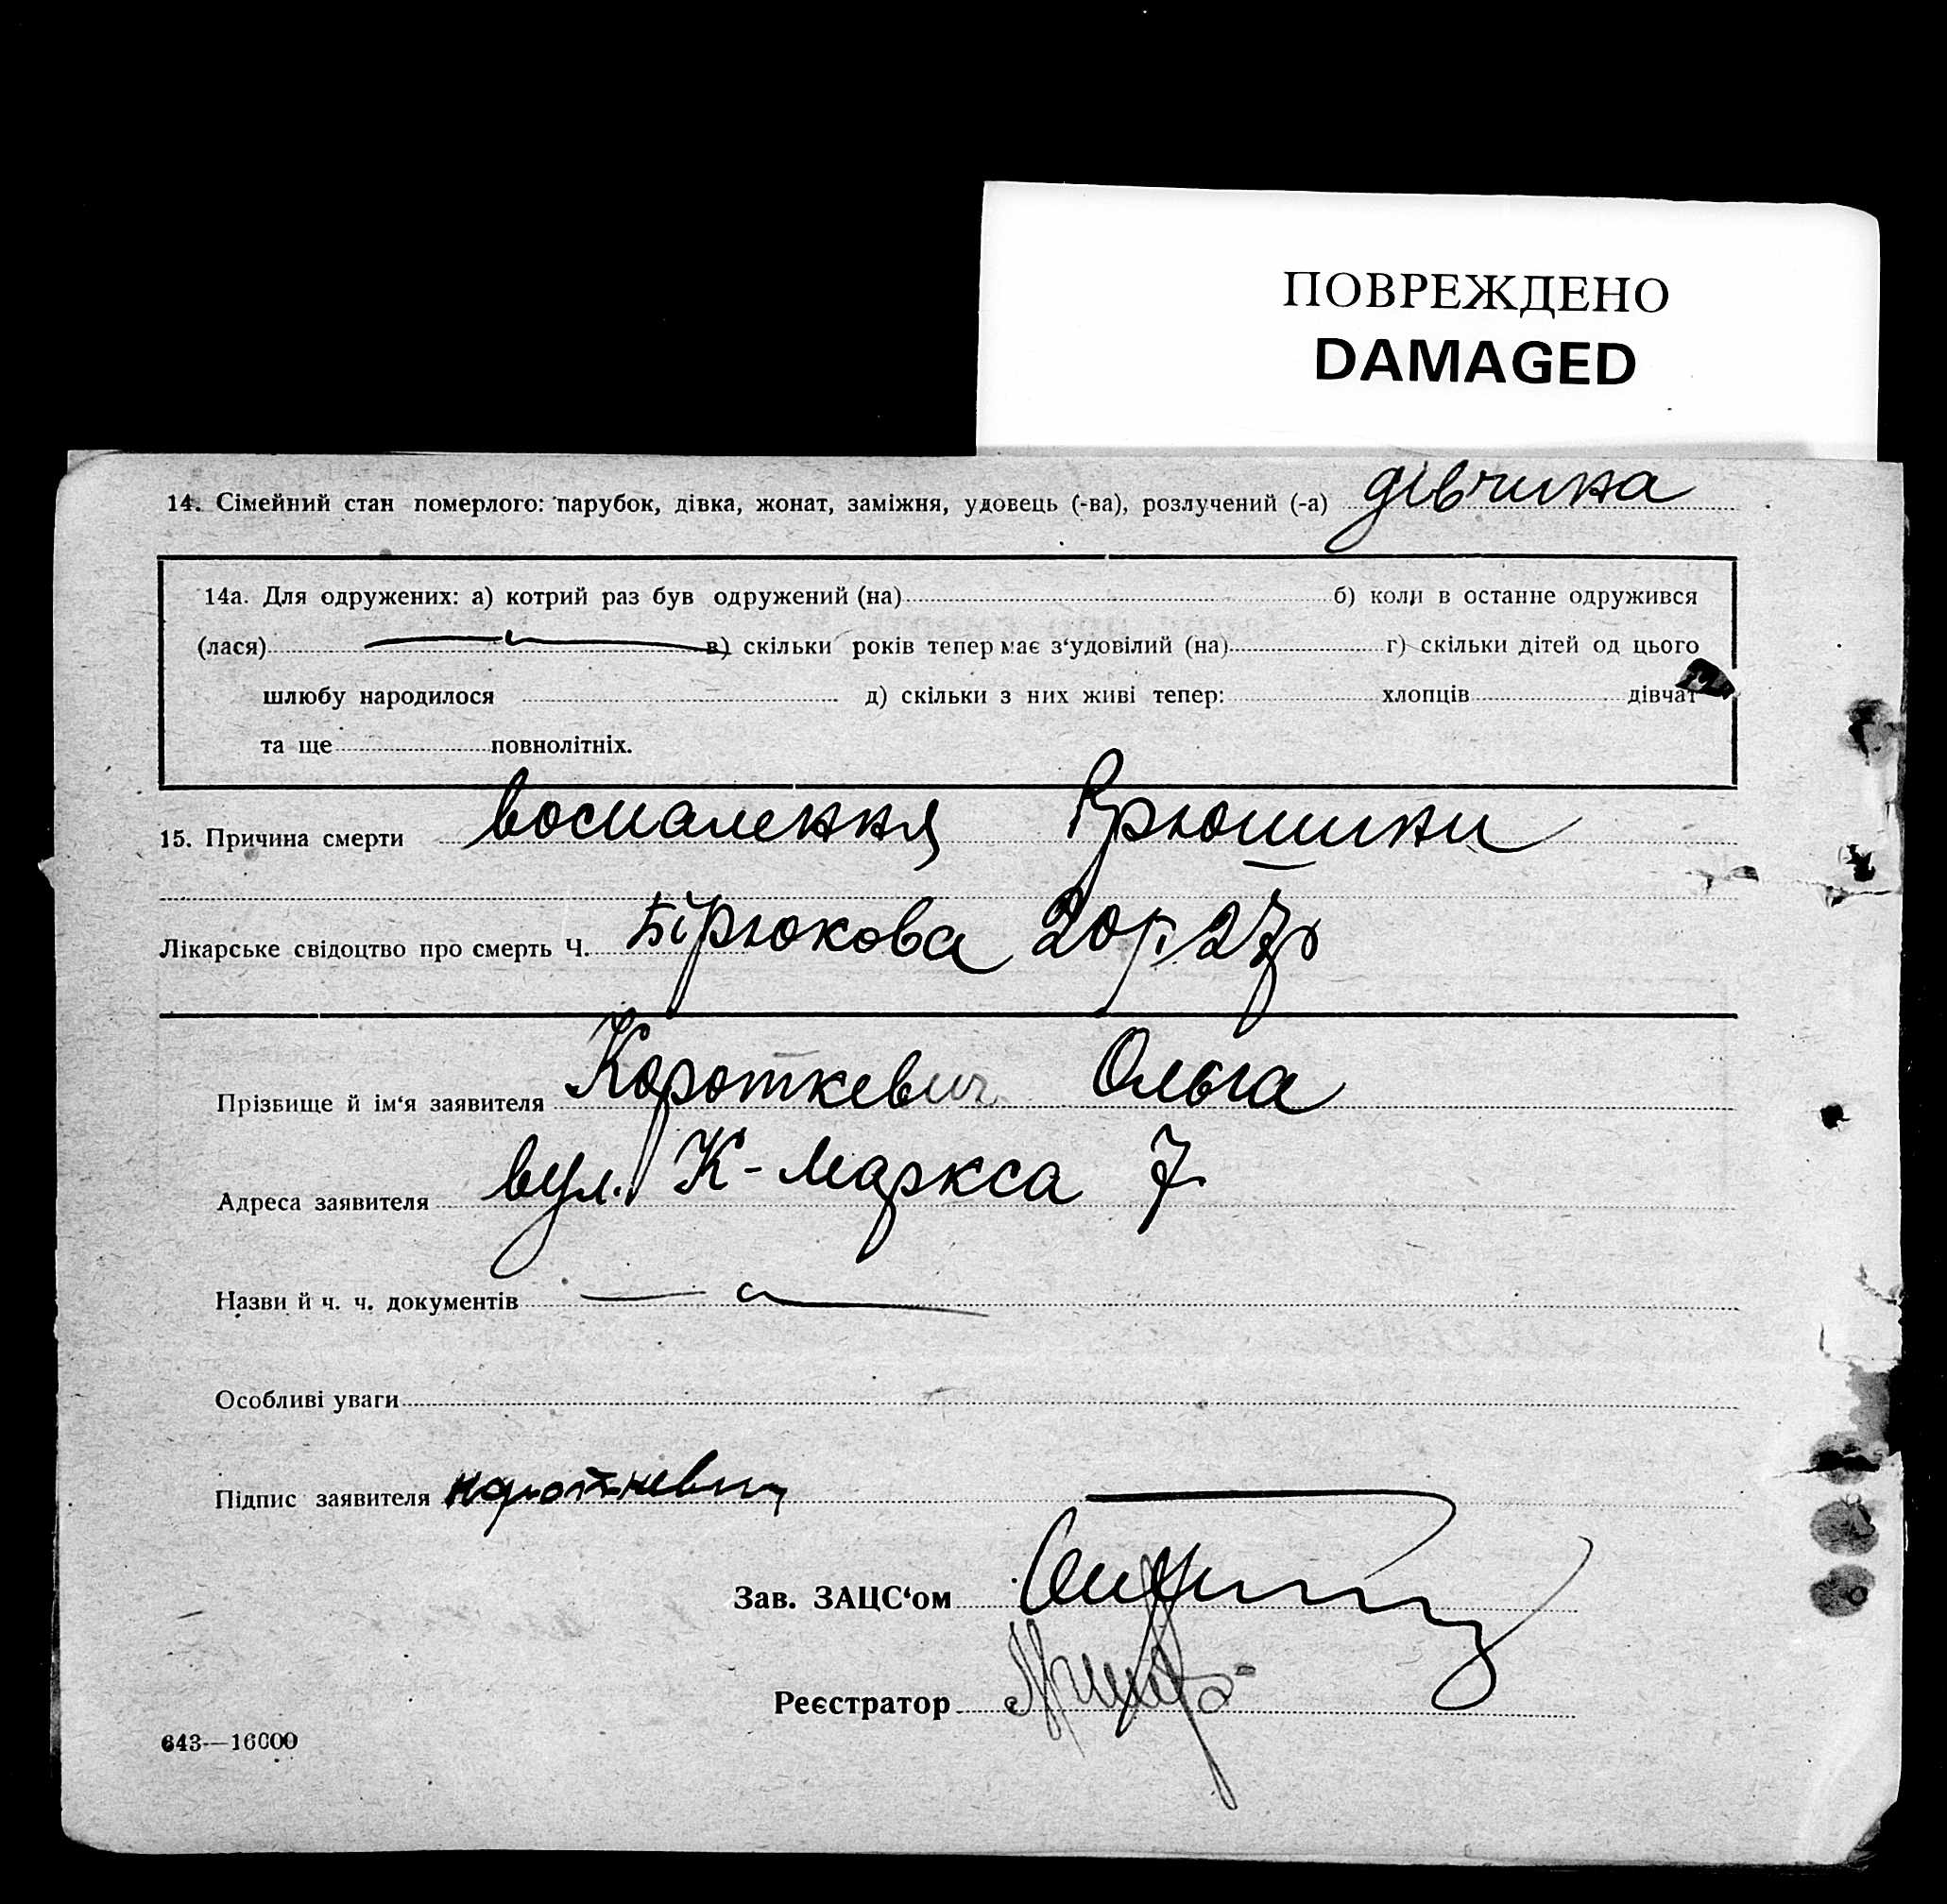 ПОВРЕЖДЕНО
DAMAGED
14. Сімейний стан померлого: парубок, дівка, жонат, заміжня, удовець (-ва), розлучений (-а) дівчина
14а. Для одружених: а) котрий раз був одружений (на) б) коли в останнє одружився
(лася) в) скільки років тепер має з‘удовілий (на) г) скільки дітей од цього
шлюбу народилося д) скільки з них живі тепер: хлопців дівчат
та ще повнолітніх.
15. Причина смерти воспалення Брюшини
Лікарське свідоцтво про смерть Ч. Бірюкова 20/
Прізвище й ім‘я заявителя Короткевич Ольга
Адреса заявителя вул. К-Маркса 7
Назви й ч. ч. документів
Особливі уваги
Підпис заявителя Короткевич
Зав. ЗАЦС‘ом
Реєстратор
643—16000